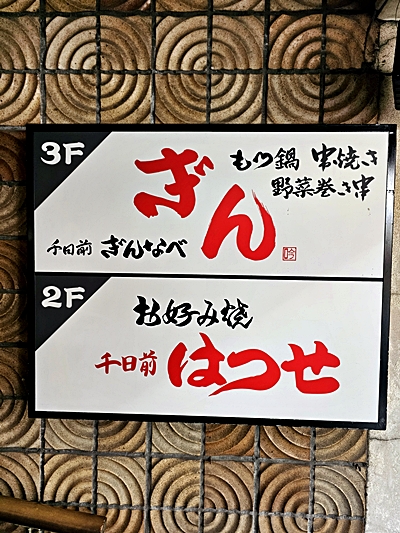 3F
もつ鍋 串焼き
野菜巻き串
ぎん
千日前 ぎんなべ
吟
2F
お好み焼
千日前 はつせ